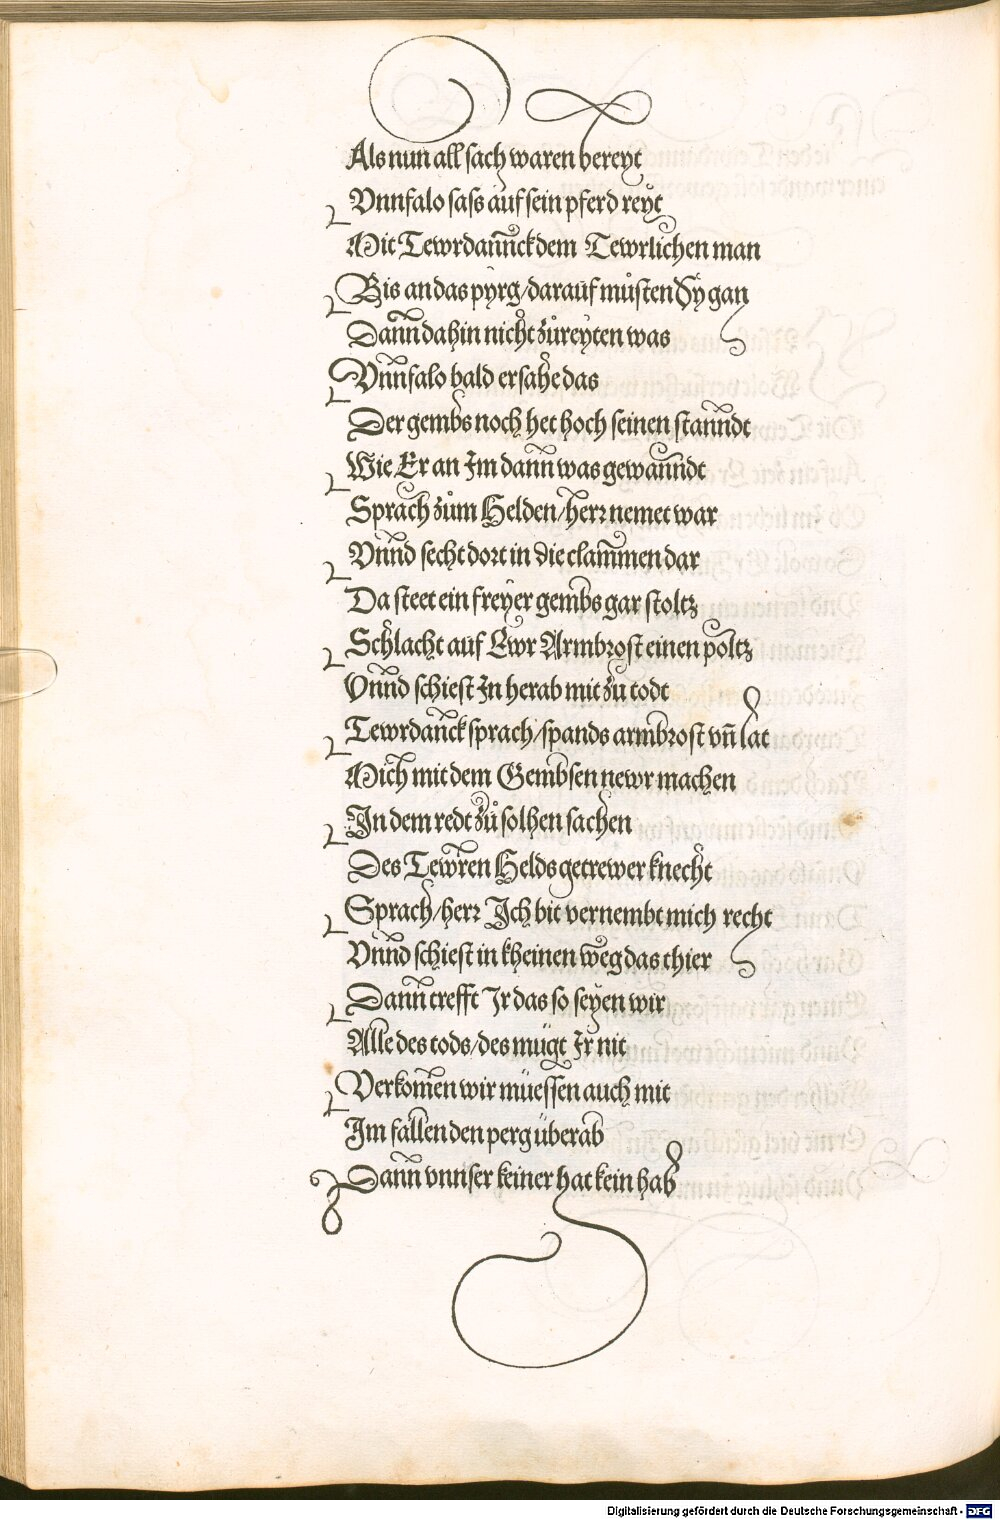 Als nun all sach waren bereyt
Vnnfalo sass auf sein pferd reyt
Mit Tewrdannck dem Tewrlichen man
Bis an das pyrg/darauf můsten Sy gan
Dann dahin nicht zůreyten was
Vnnfalo bald ersahe das
Der gembs noch het hoch seinen stanndt
Wie Er an Im dann was gewanndt
Sprach zům Helden/herr nemet war
Vnnd secht dort in die clammen dar
Da steet ein freyer gembs gar stoltz
Schlacht auf Ewr Armbrost einen poltz
Vnnd schiest In herab mit zu todt
Tewrdanck sprach/spands armbrost vn̄ lat
Mich mit dem Gembsen newr machen
In dem redt zů solhen sachen
Des Tewren Helds getrewer knecht
Sprach/herr Ich bit vernembt mich recht
Vnnd schiest in kheinen weg das thier
Dann trefft Ir das so seyen wir
Alle des tods/des mügt Ir nit
Verkomen wir müessen auch mit
Im fallen den perg überab
Dann vnnser keiner hat kein hab
Digitalisierung gefördert durch die Deutsche Forschungsgemeinschaft - DFG